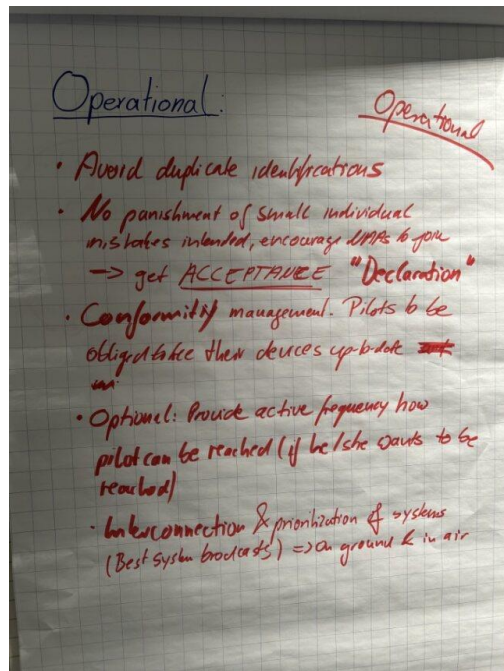 Operational:
Operational
• Avoid duplicate identifications
• No panishment of small individual
mistakes intended, encourage to
→ get ACCEPTANCE "Declaration"
• Conformity management. Pilots to be
obliged their devices up-to-date
• Optional: Provide active frequency how
pilot can be reached (if he/she wants to be
reached)
• Interconnection & prioritization of systems
(Best system broadcasts) => on ground & in air